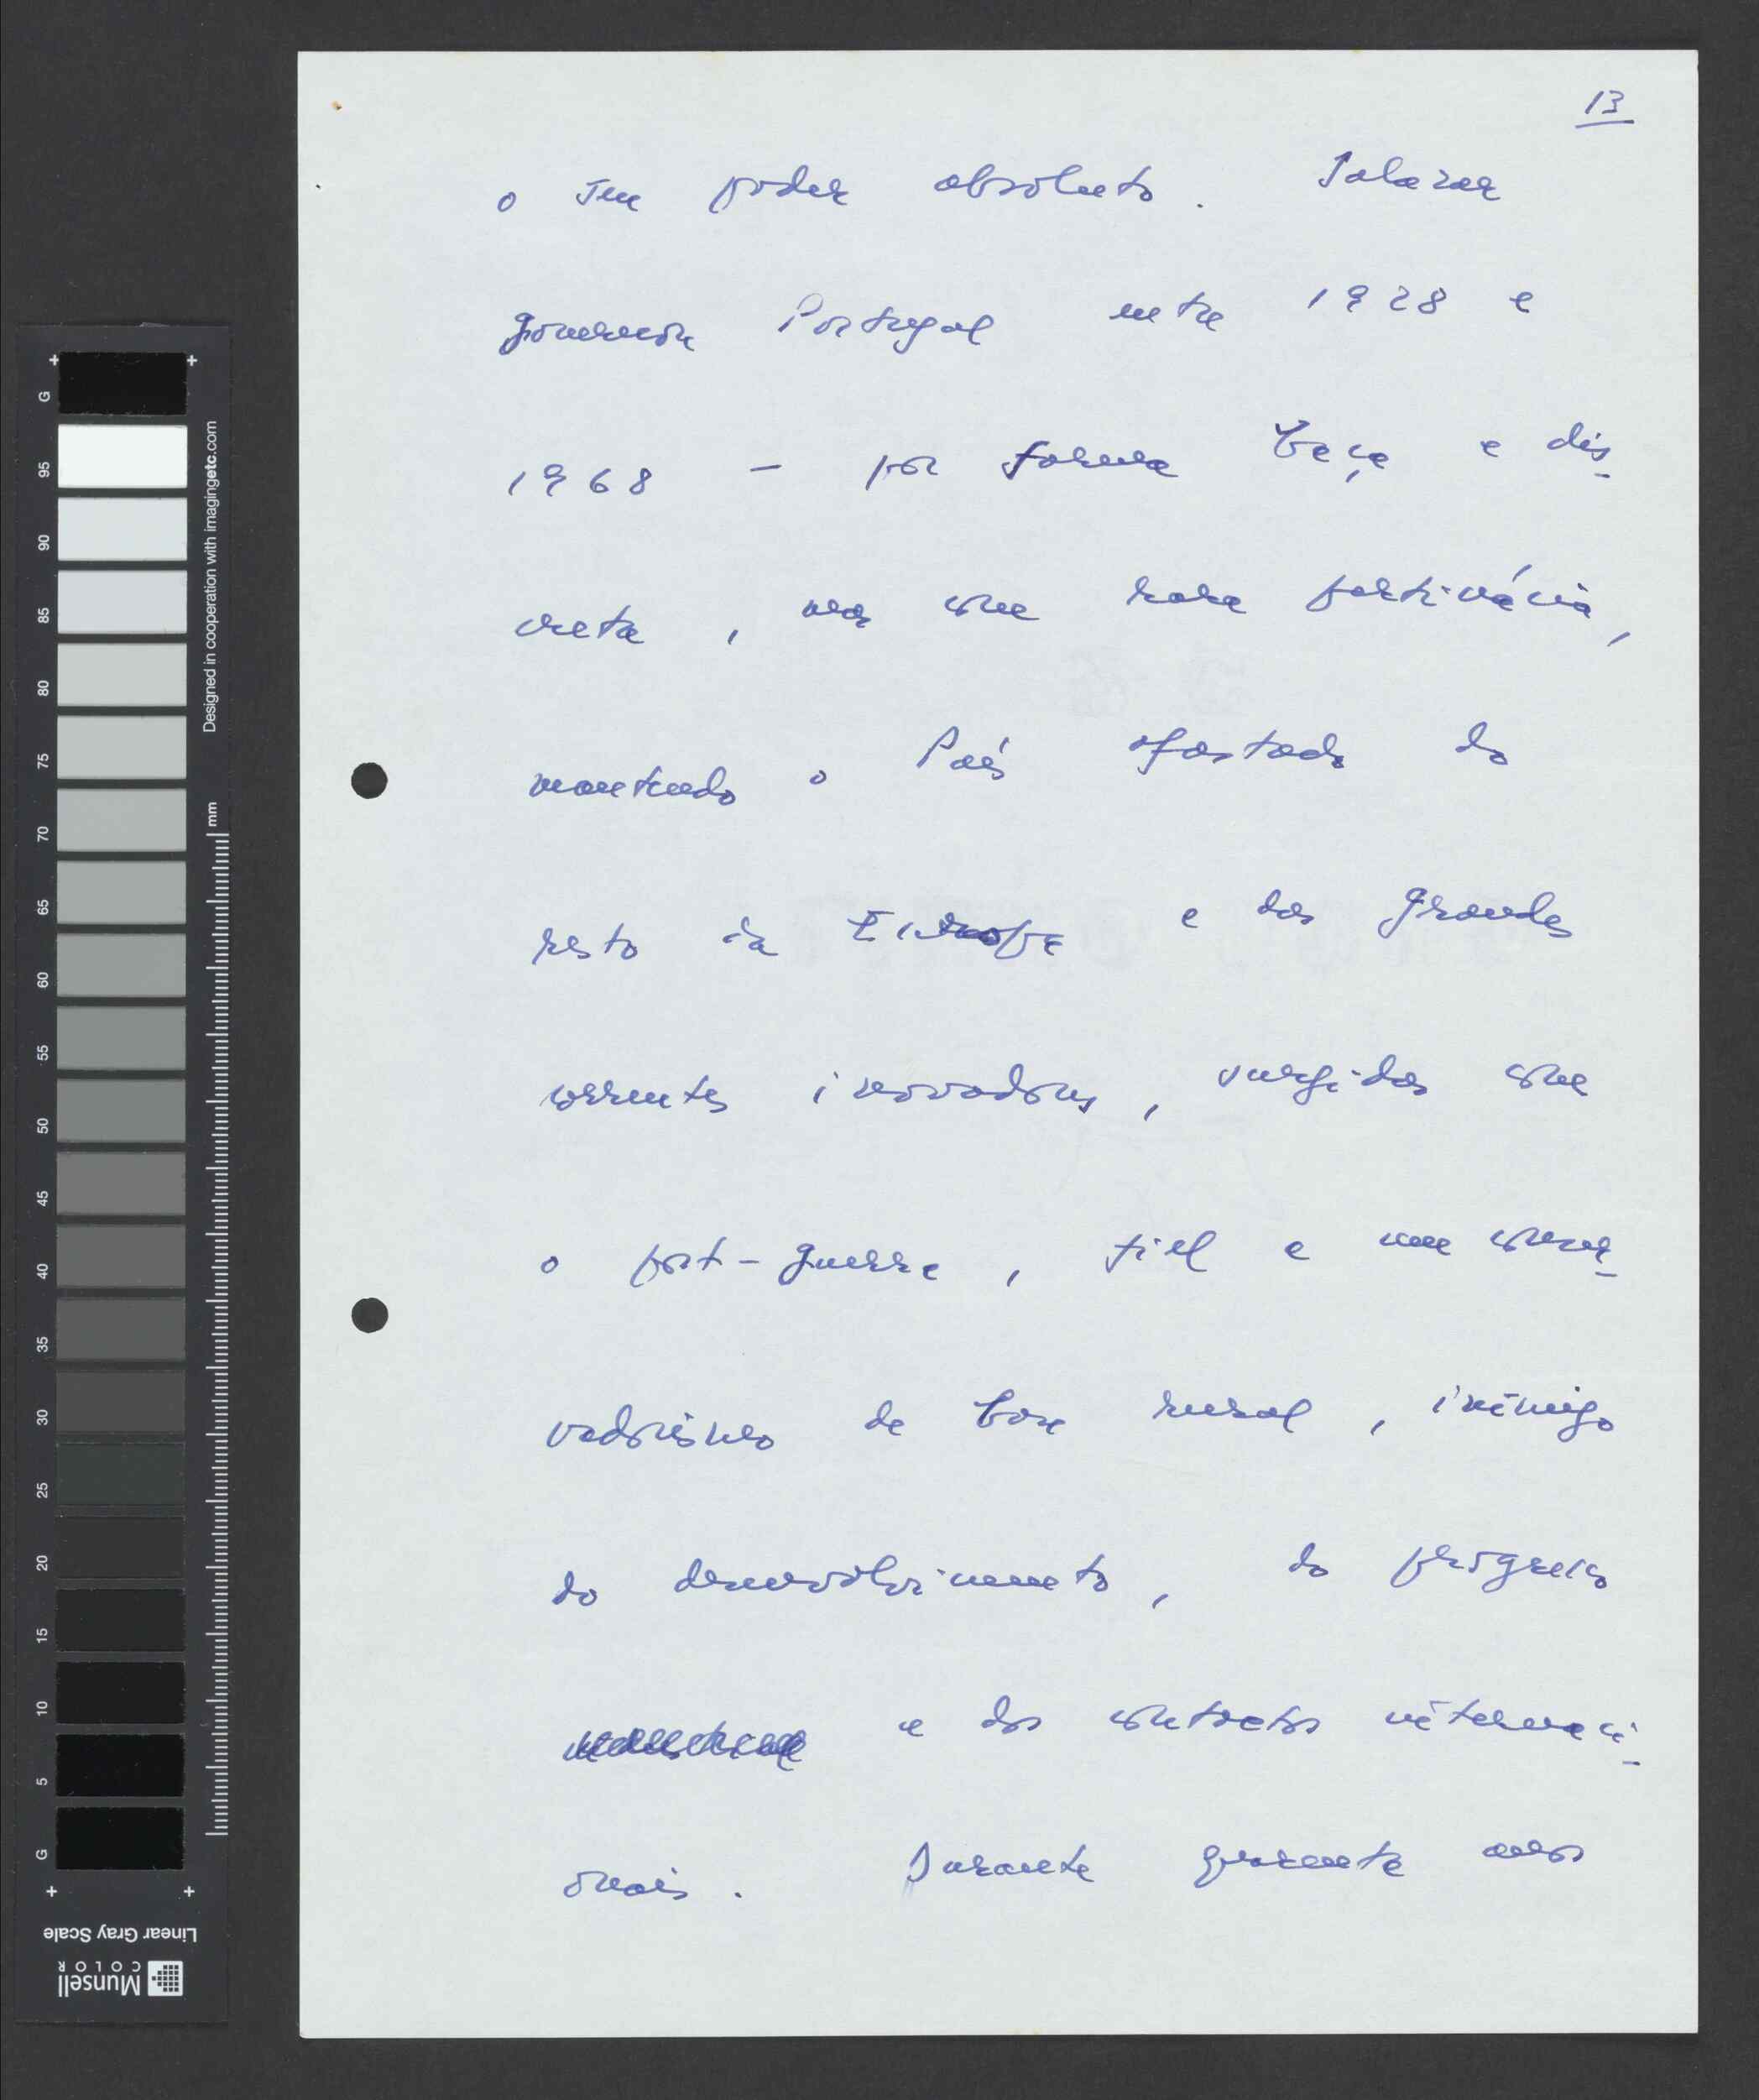 13
o seu poder absoluto. Salazar
governou Portugal entre 1928 e
1968 – por forma baça e dis-
creta, mas com rara pertinácia,
mantendo o País afastado do
resto da Europa e das grandes
correntes inovadoras, surgidas com
o post-guerra, fiel a um conser-
vadorismo de base rural, inimigo
do desenvolvimento, do progresso
e dos contactos internaci-
onais. Durante quarenta anos
G
95
90
85
80
75
70
65
60
55
50
45
40
35
30
25
20
15
10
5
G
Designed in cooperation with imagingetc.com
mm
Linear Gray Scale
Munsell
COLOR